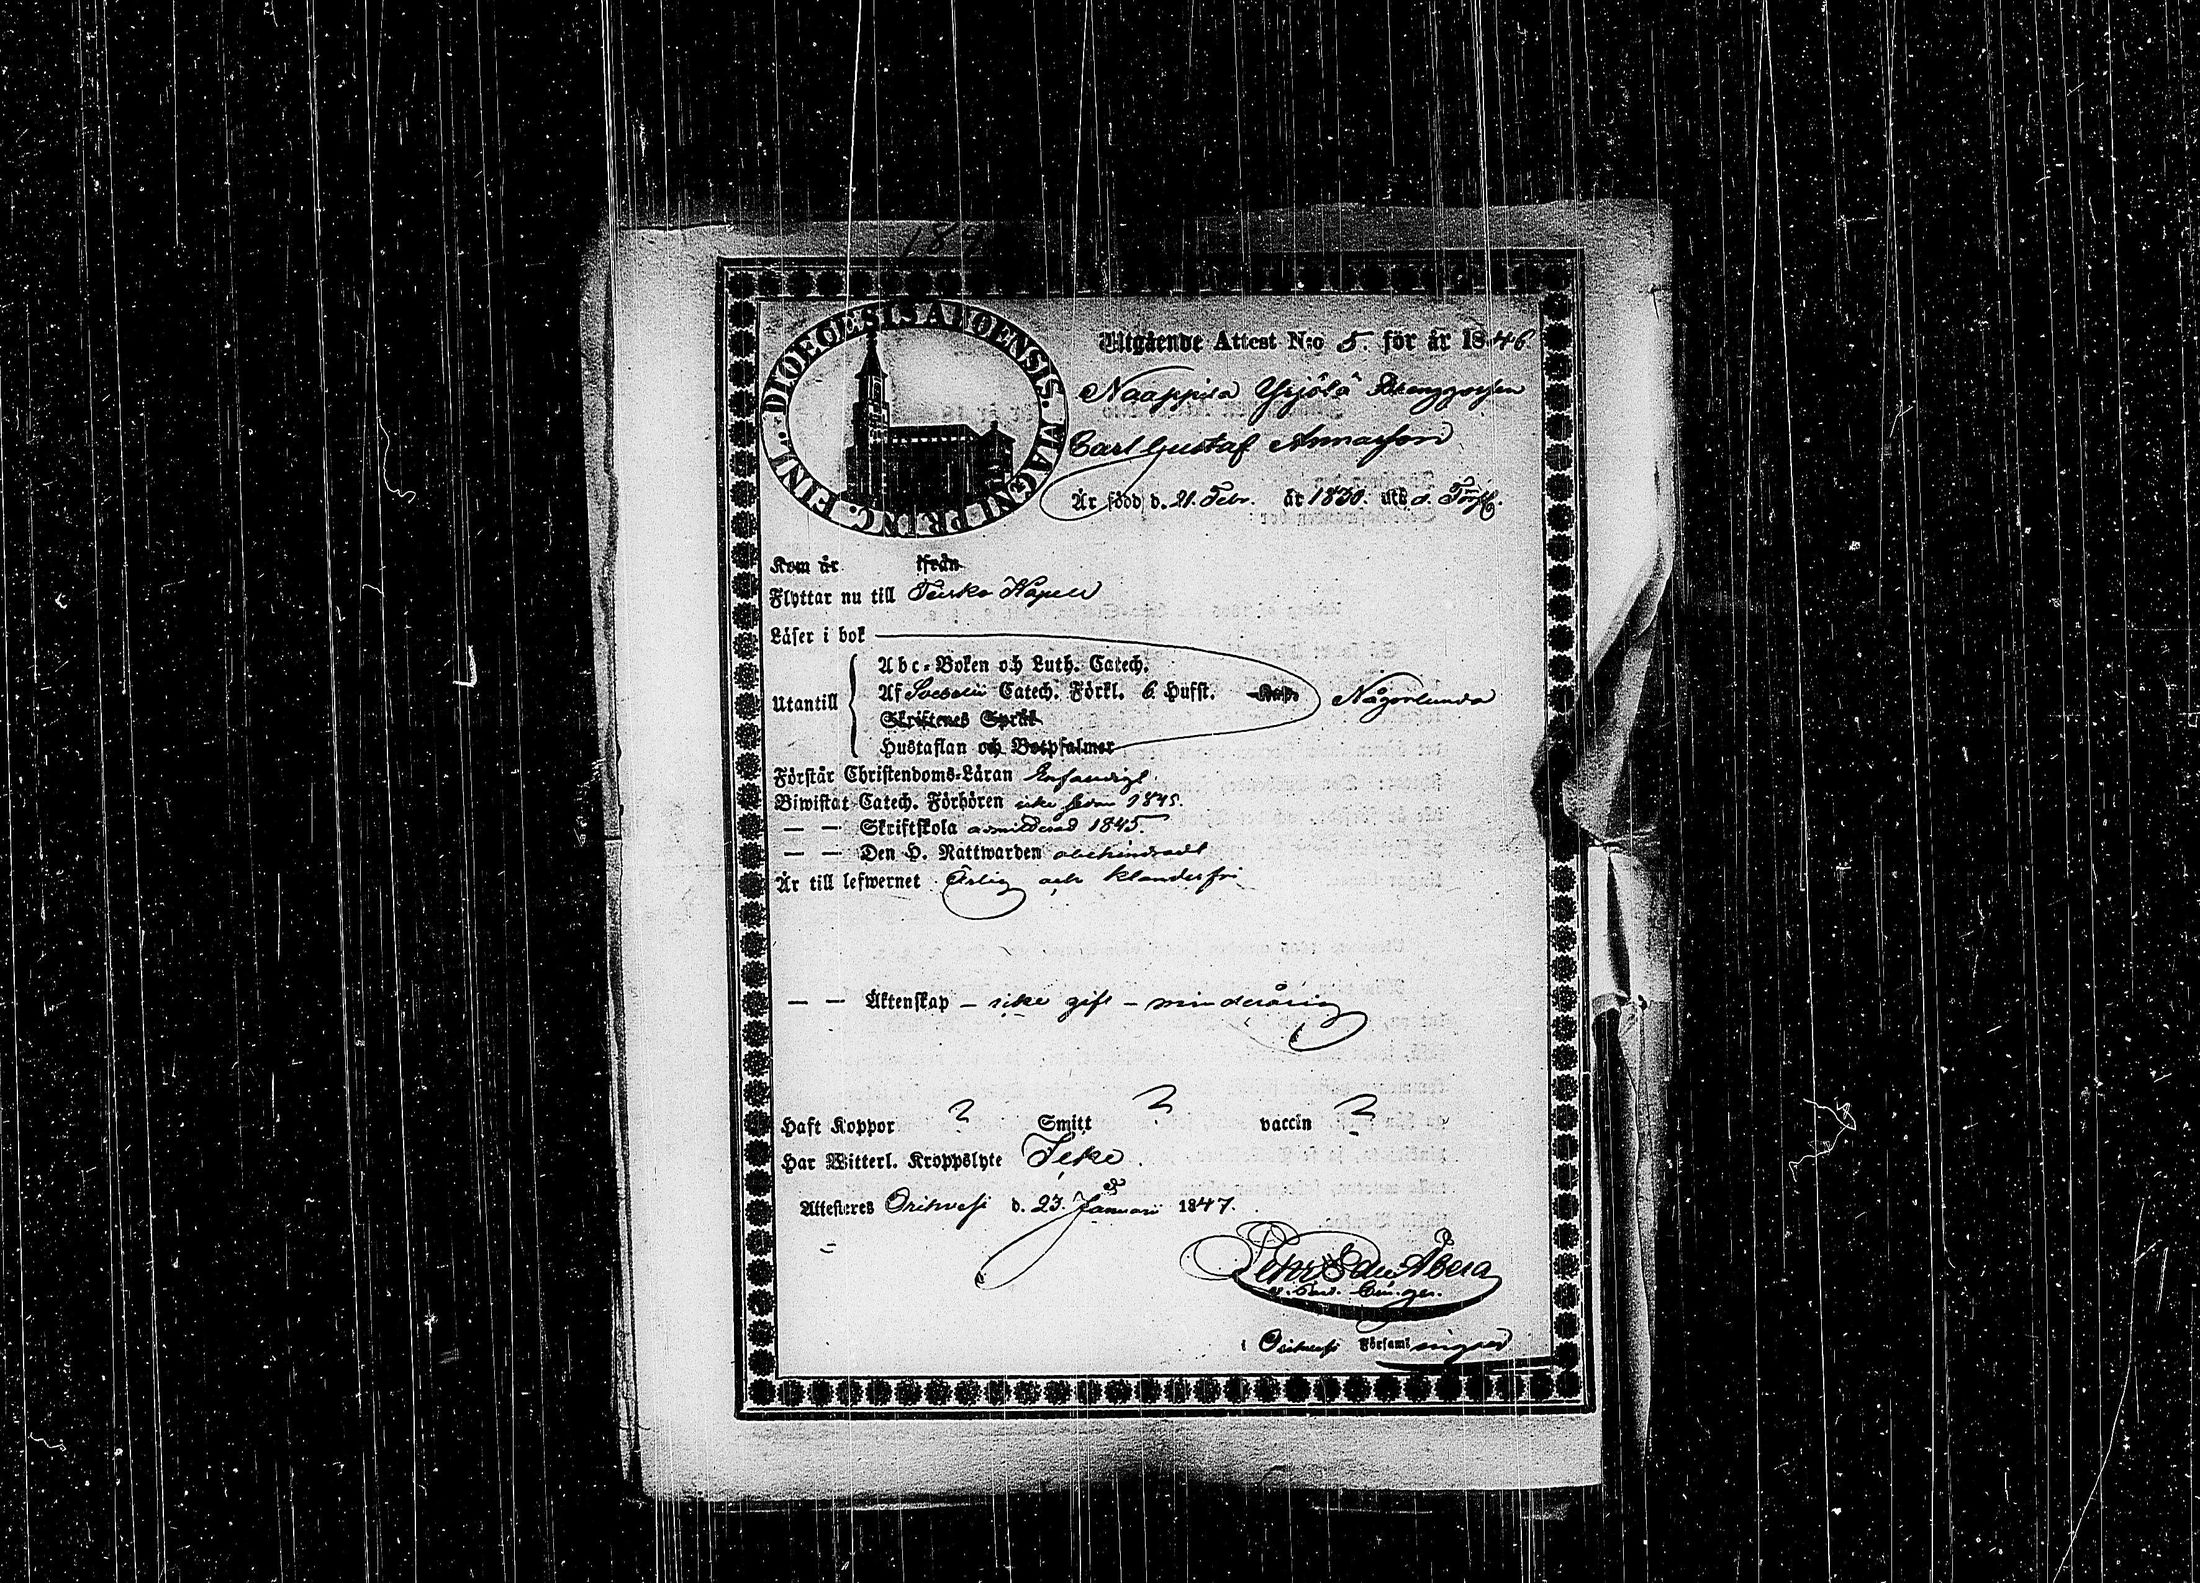 187
DIOECESIS ABOENSIS. MAGNI PRINC. FINL.
Utgående Attest N:o 5. för år 1846.
Naappila Yrjölä Drenggossen
Carl Gustaf Annasson
Är född d. 21. Febr. år 1830. uti d. Förs.
Kom år ifrån
Flyttar nu till Teisko Kapell
Läser i bok
Abc-Boken och Luth. Catech.
Utantill Af Svebelii Catech. Förkl. 6 Hufst. Någorlunda
Skriftenes Språk
Hustaflan och Botpsalmer
Förstår Christendoms-Läran Enfaldigt.
Biwistat Catech. Förhören icke sedan 1845.
— — Skriftskola admitterad 1845.
— — Den H. Nattwarden obehindradt
Är till lefwernet Ärlig och klanderfri
— — Äktenskap – icke gift – minderårig
Haft Koppor ? Smitt ? vaccin ?
Har Witterl. Kroppslyte Icke.
Attesteres Orihvesi d. 23. Januari 1847.
Petter Edv. Åberg
i Orihvesi Församlingar